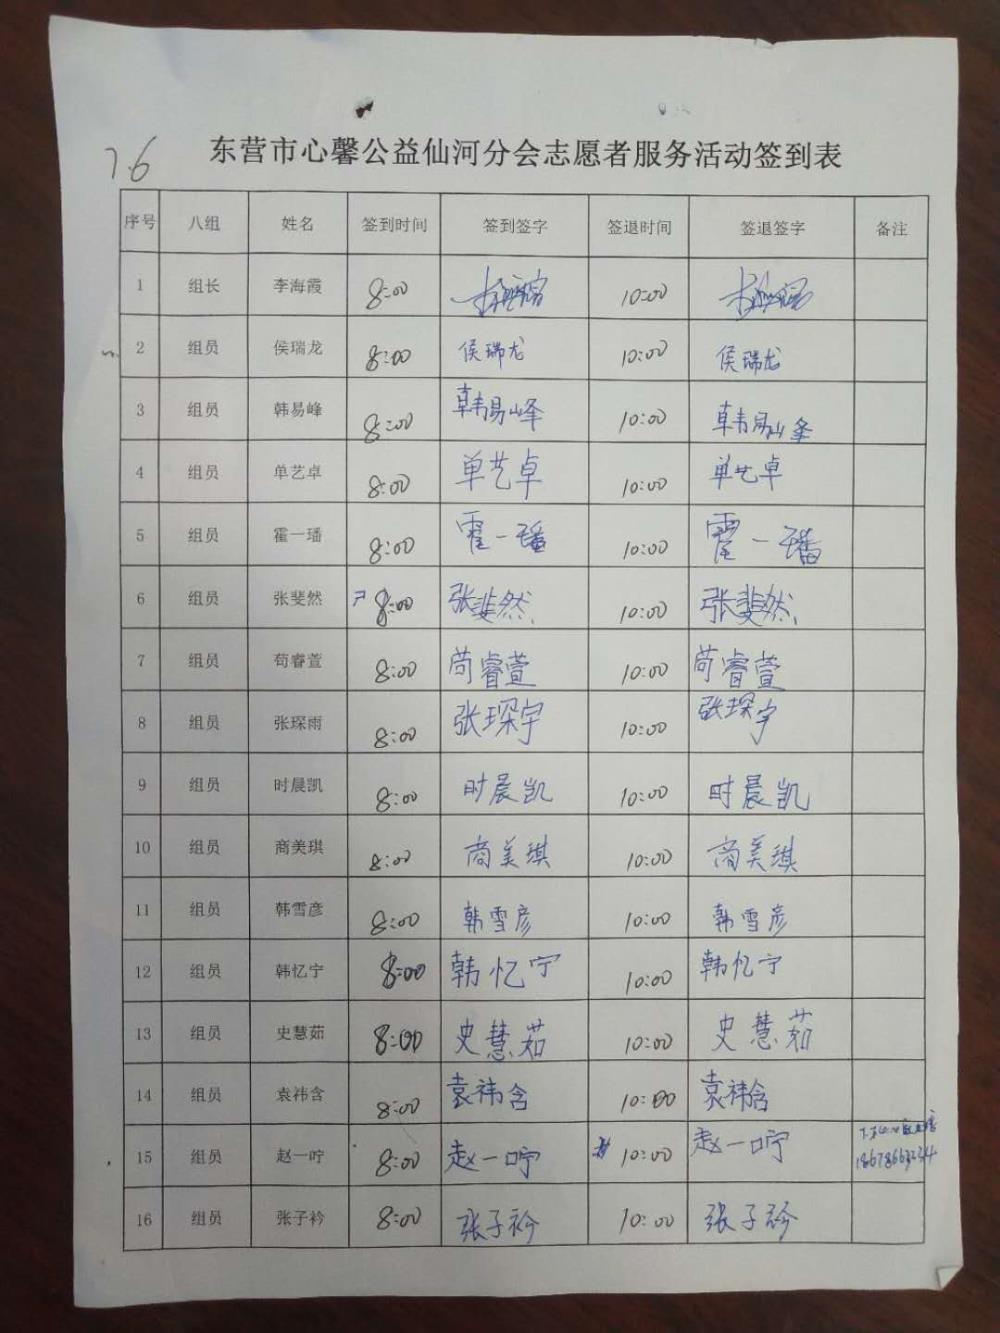 7.6
东营市心馨公益仙河分会志愿者服务活动签到表
序号 八组 姓名 签到时间 签到签字 签退时间 签退签字 备注
1 组长 李海霞 8:00 李海霞 10:00 李海霞
2 组员 侯瑞龙 8:00 侯瑞龙 10:00 侯瑞龙
3 组员 韩易峰 8:00 韩易峰 10:00 韩易峰
4 组员 单艺卓 8:00 单艺卓 10:00 单艺卓
5 组员 霍一璠 8:00 霍一璠 10:00 霍一璠
6 组员 张斐然 8:00 张斐然 10:00 张斐然
7 组员 苟睿萱 8:00 苟睿萱 10:00 苟睿萱
8 组员 张琛雨 8:00 张琛宇 10:00 张琛宇
9 组员 时晨凯 8:00 时晨凯 10:00 时晨凯
10 组员 商美琪 8:00 商美琪 10:00 商美琪
11 组员 韩雪彦 8:00 韩雪彦 10:00 韩雪彦
12 组员 韩忆宁 8:00 韩忆宁 10:00 韩忆宁
13 组员 史慧茹 8:00 史慧茹 10:00 史慧茹
14 组员 袁祎含 8:00 袁祎含 10:00 袁祎含
15 组员 赵一咛 8:00 赵一咛 10:00 赵一咛
16 组员 张子衿 8:00 张子衿 10:00 张子衿